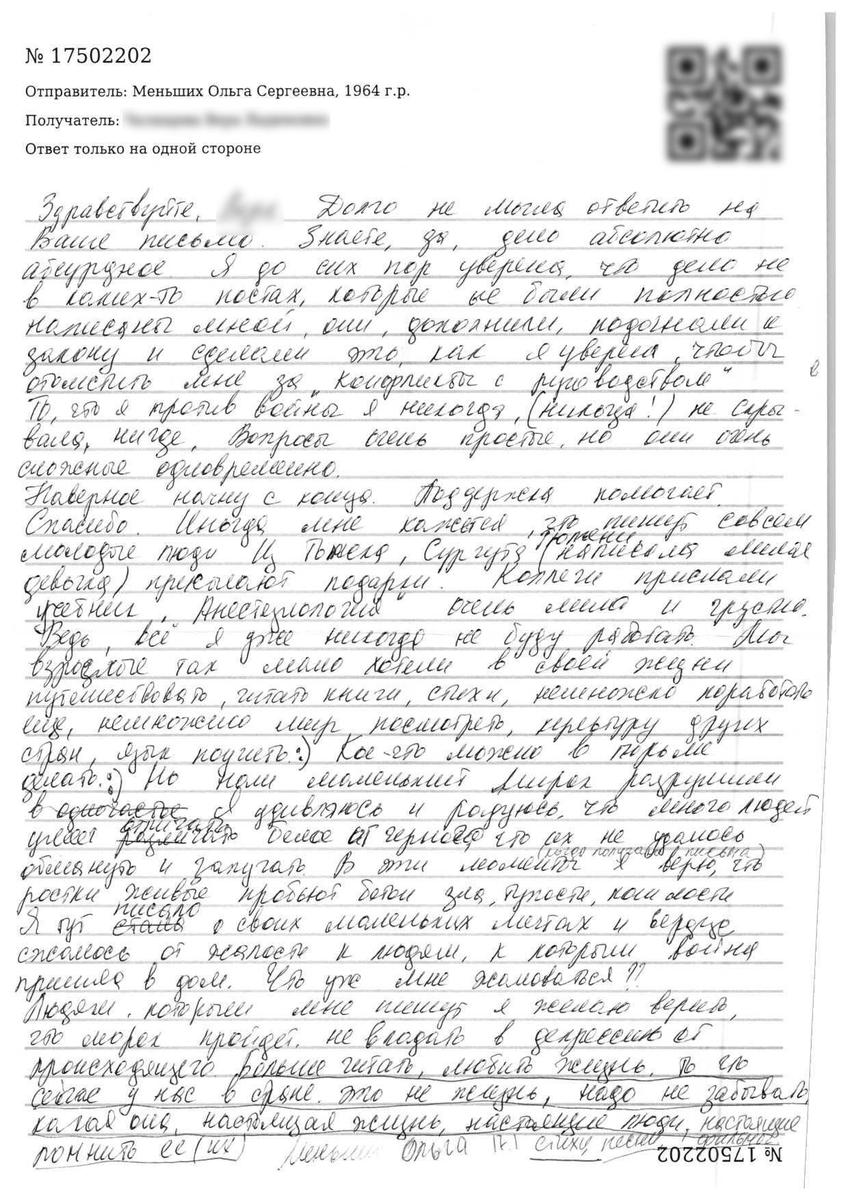 № 17502202
Отправитель: Меньших Ольга Сергеевна, 1964 г.р.
Получатель:
Ответ только на одной стороне
Здравствуйте, Долго не могла ответить на
Ваше письмо. Знаете, да, дело абсолютно
абсурдное. Я до сих пор уверена, что дело не
в каких-то постах, которые не были полностью
написаны мной, они, дополнили, подогнали к
закону и сделали это, как я уверена, чтобы
отомстить мне за „конфликты с руководством“
То, что я против войны я никогда, (никогда!) не скры-
вала, нигде, Вопросы очень простые, но они очень
сложные одновременно.
Наверное начну с конца. Поддержка помогает.
Спасибо. Иногда мне кажется, что пишут совсем
молодые люди Из Тюмени, Сургута (написала милая
девочка) присылают подарки. Коллеги прислали
учебник „Анестезиология“ очень мило и грустно.
Ведь, всё я уже никогда не буду работать. Мы
взрослые так мало хотели в своей жизни
путешествовать, читать книги, стихи, немножко поработать
еще, немножко мир посмотреть, культуру других
стран, язык поучить:) Кое-что можно в тюрьме
делать:) Но наш маленький мирок разрушили
в одночастье Я удивляюсь и радуюсь, что много людей
умеет отличать белое от черного что их не удалось
обмануть и запугать В эти моменты (когда получаю письма) я верю, что
ростки живые пробьют бетон зла, тупости, подлости
Я тут писала о своих маленьких мечтах и сердце
сжалось от жалости к людям, к которым война
пришла в дом. Что уж мне жаловаться??
Людям, которые мне пишут я желаю верить,
что морок пройдет. не впадать в депрессию от
происходящего Больше читать, любить жизнь. То что
сейчас у нас в стране. это не жизнь, надо не забывать
какая она, настоящая жизнь, настоящие люди, настоящие
помнить ее (их) Меньших Ольга стихи, песни, фильмы
№ 17502202